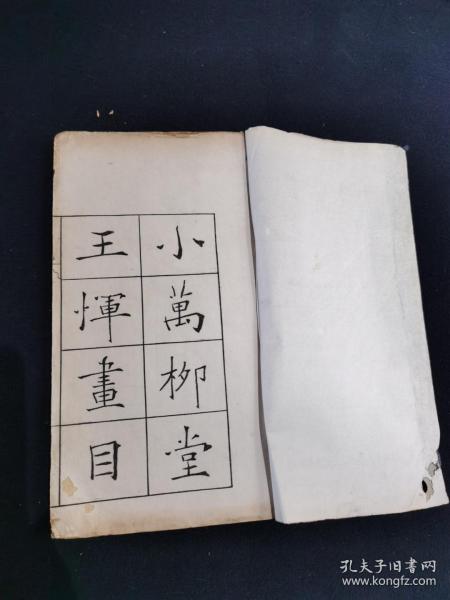 小萬柳堂
王惲畫目
孔夫子旧书网
www.kongfz.com